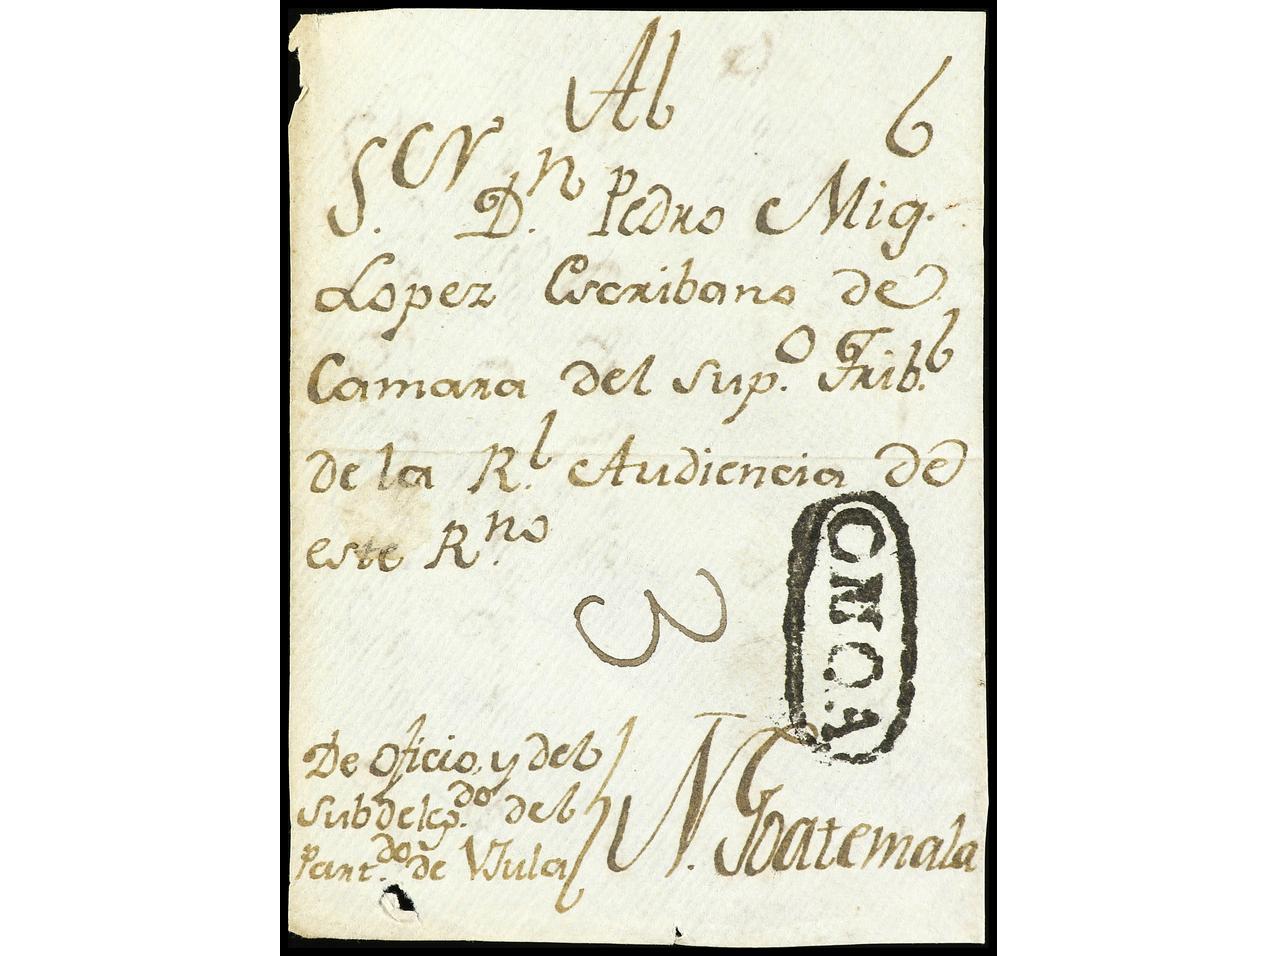 Al 6
S.or D.n Pedro Mig.
Lopez Escribano de
Camara del Sup.o Trib.l
de la R.l Audiencia de
este R.no
3
OMOA
De oficio, y del
Subdeleg.do del
Part.do de Ulua
N. Goatemala